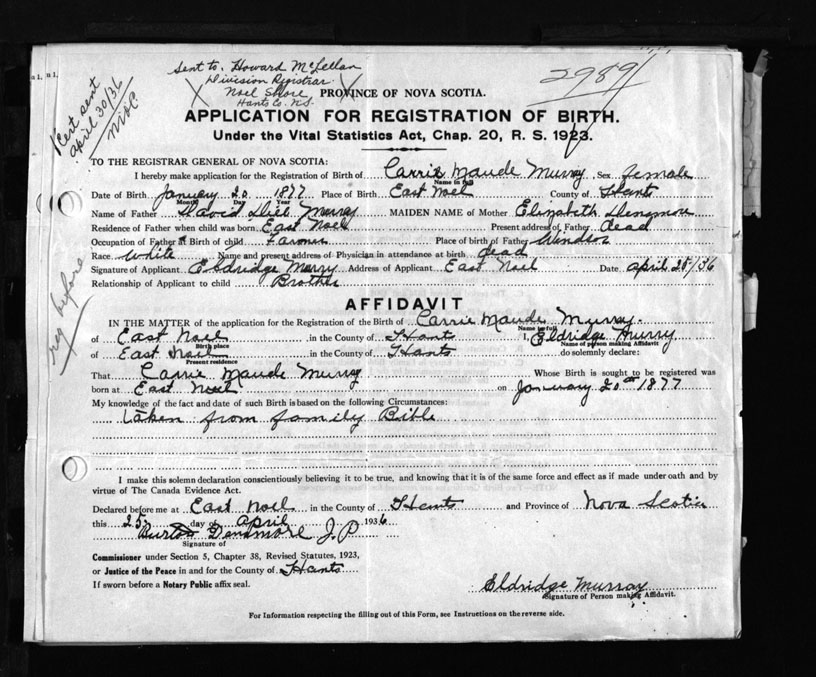 Sent to. Howard McLellan
Division Registrar
Noel Shore
Hants Co. N.S.
2989
Cert sent
april 30/36
PROVINCE OF NOVA SCOTIA.
APPLICATION FOR REGISTRATION OF BIRTH.
Under the Vital Statistics Act, Chap. 20, R. S. 1923.
TO THE REGISTRAR GENERAL OF NOVA SCOTIA:
I hereby make application for the Registration of Birth of Carrie Maude Murray Sex female
Name in full
Date of Birth January 20 1877 Place of Birth East Noel County of Hants
Month Day Year
Name of Father David Murray MAIDEN NAME of Mother Elizabeth Densmore
Residence of Father when child was born East Noel Present address of Father dead
Occupation of Father at Birth of child Farmer Place of birth of Father Windsor
Race White Name and present address of Physician in attendance at birth dead
Signature of Applicant Eldridge Murry Address of Applicant East Noel Date april 25/36
Relationship of Applicant to child Brother
reg before
AFFIDAVIT
IN THE MATTER of the application for the Registration of the Birth of Carrie Maude Murray.
Name in full
of East Noel in the County of Hants I, Eldridge Murry
Birth place Name of person making Affidavit
of East Noel in the County of Hants do solemnly declare:
Present residence
That Carrie Maude Murray Whose Birth is sought to be registered was
born at East Noel on January 20th 1877
My knowledge of the fact and date of such Birth is based on the following Circumstances:
taken from family Bible
I make this solemn declaration conscientiously believing it to be true, and knowing that it is of the same force and effect as if made under oath and by
virtue of The Canada Evidence Act.
Declared before me at East Noel in the County of Hants and Province of Nova Scotia
this 25 day of april 1936
Burton Densmore J.P
Signature of
Commissioner under Section 5, Chapter 38, Revised Statutes, 1923,
or Justice of the Peace in and for the County of Hants
If sworn before a Notary Public affix seal.
Eldridge Murray
Signature of Person making Affidavit.
For Information respecting the filling out of this Form, see Instructions on the reverse side.